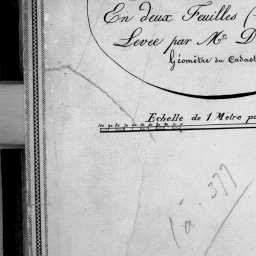 En deux Feuilles (
Levée par Mr. D
Géomètre du Cadast
Echelle de 1 Metre po
377